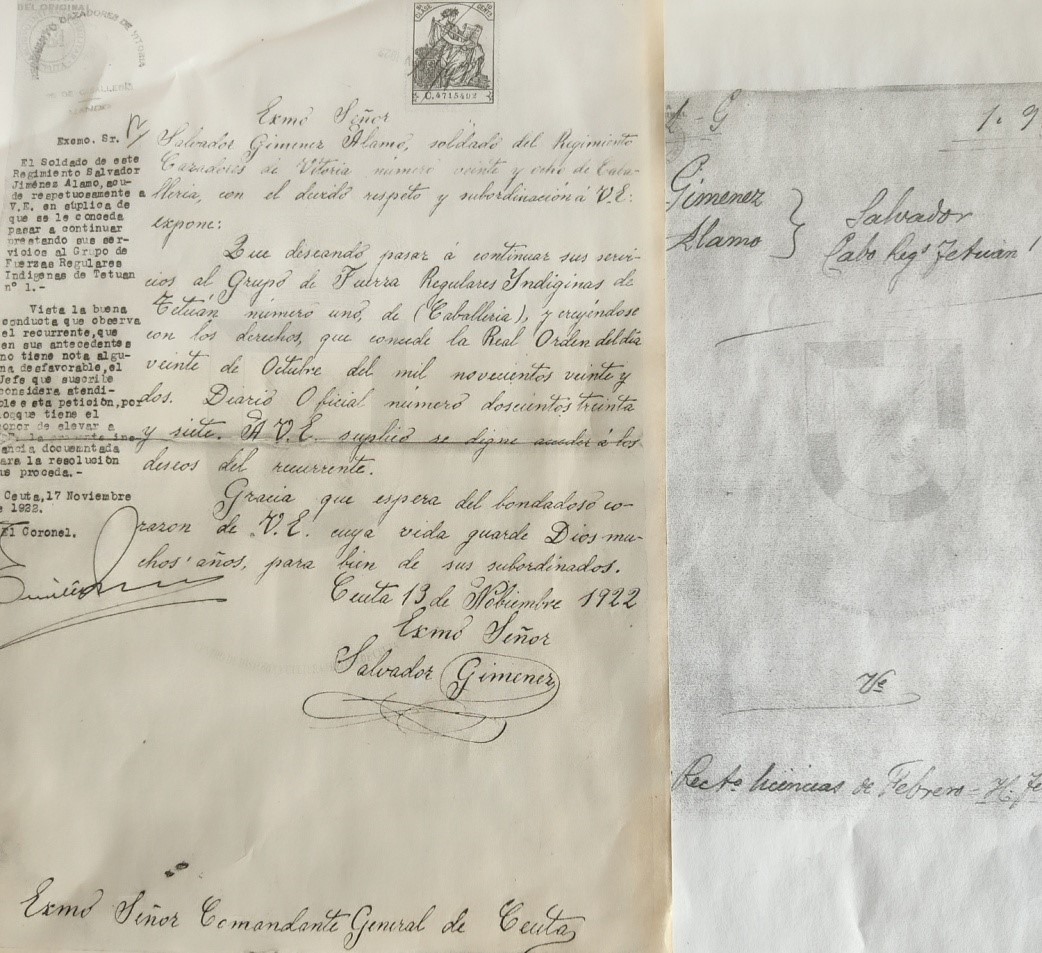 DEL ORIGINAL
REGIMIENTO CAZADORES DE VITORIA
DE CABALLERIA
MANDO
CLASE
CENTS
C.4715402
Exmo Señor
Salvador Gimenez Alamo, soldado del Regimiento
Cazadores de Vitoria número veinte y ocho de Caba-
lleria, con el devido respeto y subordinación á V.E:
expone:
Que deseando pasar á continuar sus servi-
cios al Grupo de Fuerza Regulares Yndiginas de
Tetuán número uno, de (Caballeria), y creyéndose
con los derechos, que concede la Real Orden del dia
veinte de Octubre del mil novecientos veinte y
dos. Diario Oficial número doscientos treinta
y siete. A V.E. suplico se digne acceder á los
deseos del recurrente.
Gracia que espera del bondadoso co-
razon de V.E. cuya vida guarde Dios mu-
chos años, para bien de sus subordinados.
Ceuta 13 de Nobiembre 1922
Exmo Señor
Salvador Gimenez
Exmo Señor Comandante General de Ceuta
Exemo. Sr.
El Soldado de este
Regimiento Salvador
Jiménez Alamo, acu-
de respetuosamente a
V.E. en súplica de
que se le conceda
pasar a continuar
prestando sus ser-
vicios al Grupo de
Fuerzas Regulares
Indigenas de Tetuan
nº 1.-
Vista la buena
conducta que observa
el recurrente,que
en sus antecedentes
no tiene nota algu-
na desfavorable,el
Jefe que suscribe
considera atendi-
ble esta petición,por
loque tiene el
onor de elevar a
la presente ins-
ancia documentada
ara la resolución
ue proceda.-
Ceuta,17 Noviembre
e 1922.
El Coronel.
G
1. 9
Gimenez
Alamo
Salvador
Cabo Regs Tetuán 1
Vº
Rectº licencias de Febrero = H.